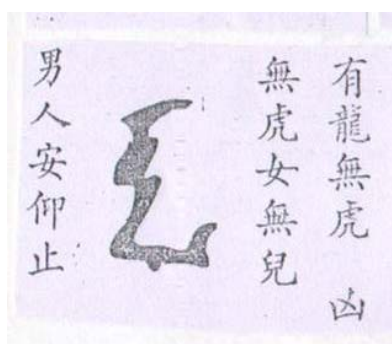 有龍無虎 凶
無虎女無兒
男人安仰止